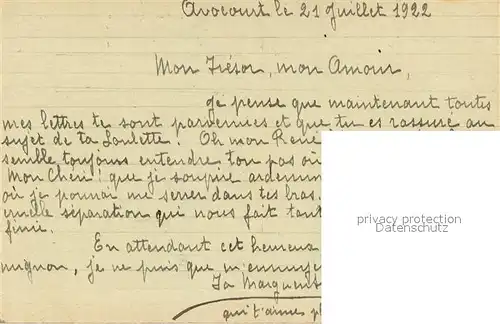 Avocourt le 21 Juillet 1922
Mon Trésor, mon Amour,
Je pense que maintenant toutes
mes lettres te sont parvenues et que tu es rassuré au
sujet de ta Loulette. Oh mon René
semble toujours entendre ton pas où
Mon Chéri! que je soupire ardemm
où je pourrai me serrer dans tes bras.
cruelle séparation qui nous fait tant
finie.
En attendant cet heureux
mignon, je ne puis que m'ennuye
Ta Marguerit
qui t'aimes pl
privacy protection